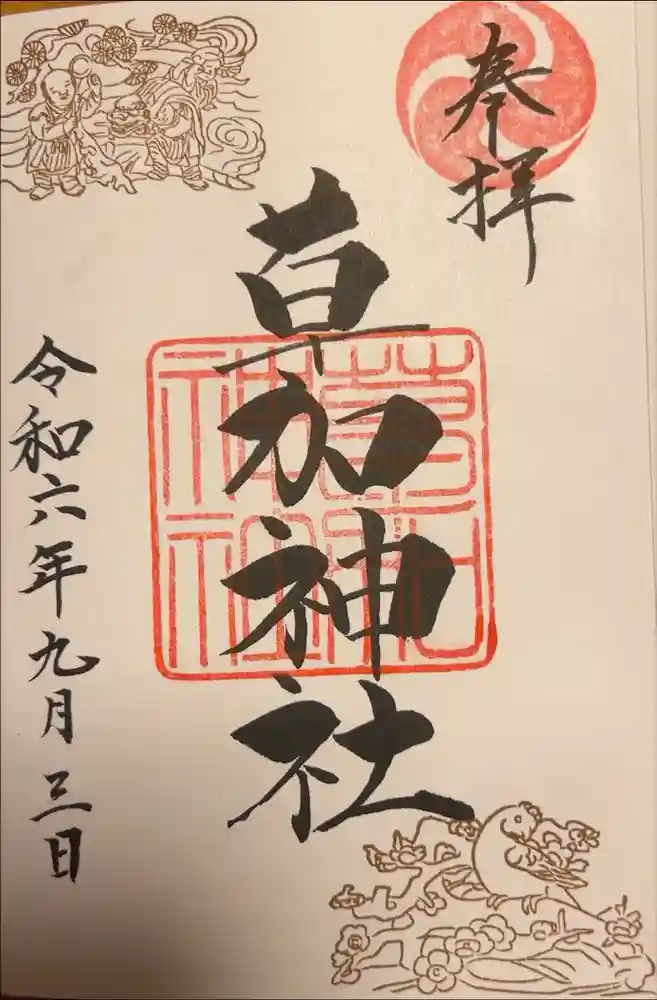 奉拝
草加神社
草加
神社
令和六年九月三日